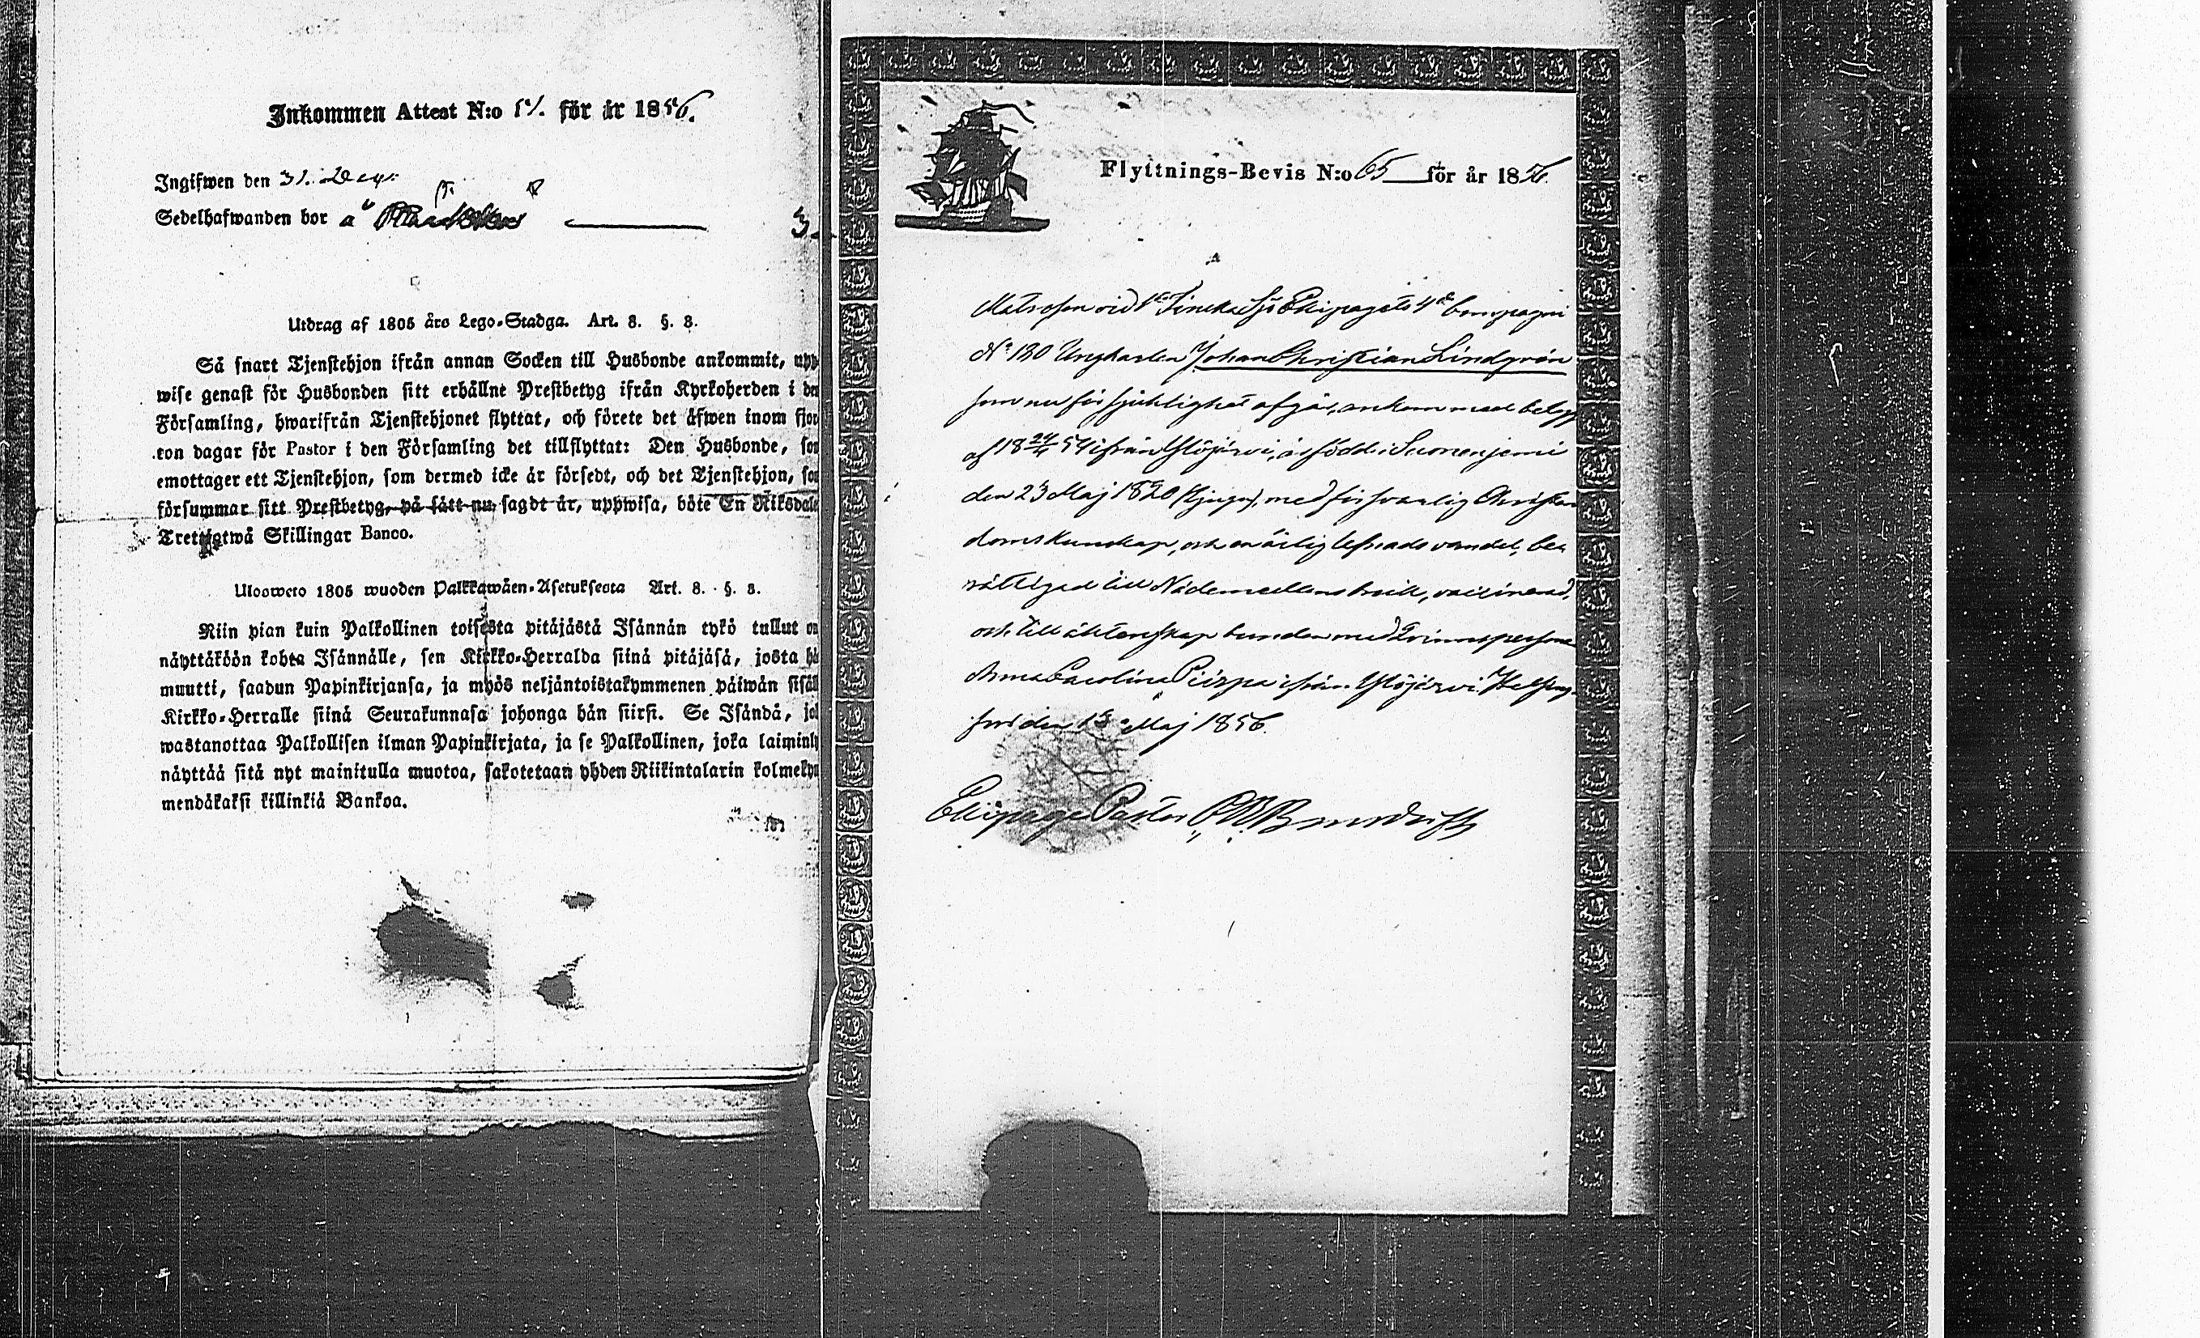 Inkommen Attest N:o 51. för år 1856.
Ingifwen den 31. Dec.
Sedelhafwanden bor å
3
Utdrag af 1805 års Lego-Stadga. Art. 8. §. 8.
Så snart Tjenstehjon ifrån annan Socken till Husbonde ankommit, upp
wise genast för Husbonden sitt erhållne Prestbetyg ifrån Kyrkoherden i den
Församling, hwarifrån Tjenstehjonet flyttat, och förete det äfwen inom fjor
ton dagar för Pastor i den Församling det tillflyttat: Den Husbonde, som
emottager ett Tjenstehjon, som dermed icke är försedt, och det Tjenstehjon, som
försummar sitt Prestbetyg, på sätt nu sagdt är, uppwisa, böte En Riksdaler
Trettiotwå Skillingar Banco.
Ulosweto 1805 wuoden Palkkawäen-Asetuksesta Art. 8. §. 8.
Niin pian kuin Palkollinen toisesta pitäjästä Isännän tykö tullut on
näyttäköön kohta Isännälle, sen Kirkko-Herralda siinä pitäjäsä, josta hän
muutti, saadun Papinkirjansa, ja myös neljäntoistakymmenen päiwän sisäl
Kirkko-Herralle siinä Seurakunnasa johonga hän siirsi. Se Isändä, jok
wastanottaa Palkollisen ilman Papinkirjata, ja se Palkollinen, joka laiminly
näyttää sitä nyt mainitulla muotoa, sakotetaan yhden Riikintalarin kolmeky
mendäkaksi killinkiä Bankoa.
Flyttnings-Bevis N:o 65 för år 1856.
Matrosen vid 1sta Finska Sjö Ekipagets 4de Compagni
No 180 Ungkarlen Johan Christian Lindgrén
som nu för sjuklighet afgår, ankom med betyg
af 18 24/4 54 ifrån Ylöjärvi, är född i Suonenjemi
den 23 Maj 1820 (tjugu), med försvarlig Christen
doms kunskap, och en ärlig lefnads vandel, be
rättigad till Nådemedlens bruk, vaccinerad,
och till äktenskap bunden med Qvinnspersonen
Anna Carolina Piirpa ifrån Ylöjärvi. Helsing
fors den 13 Maj 1856.
Ekipage Pastor